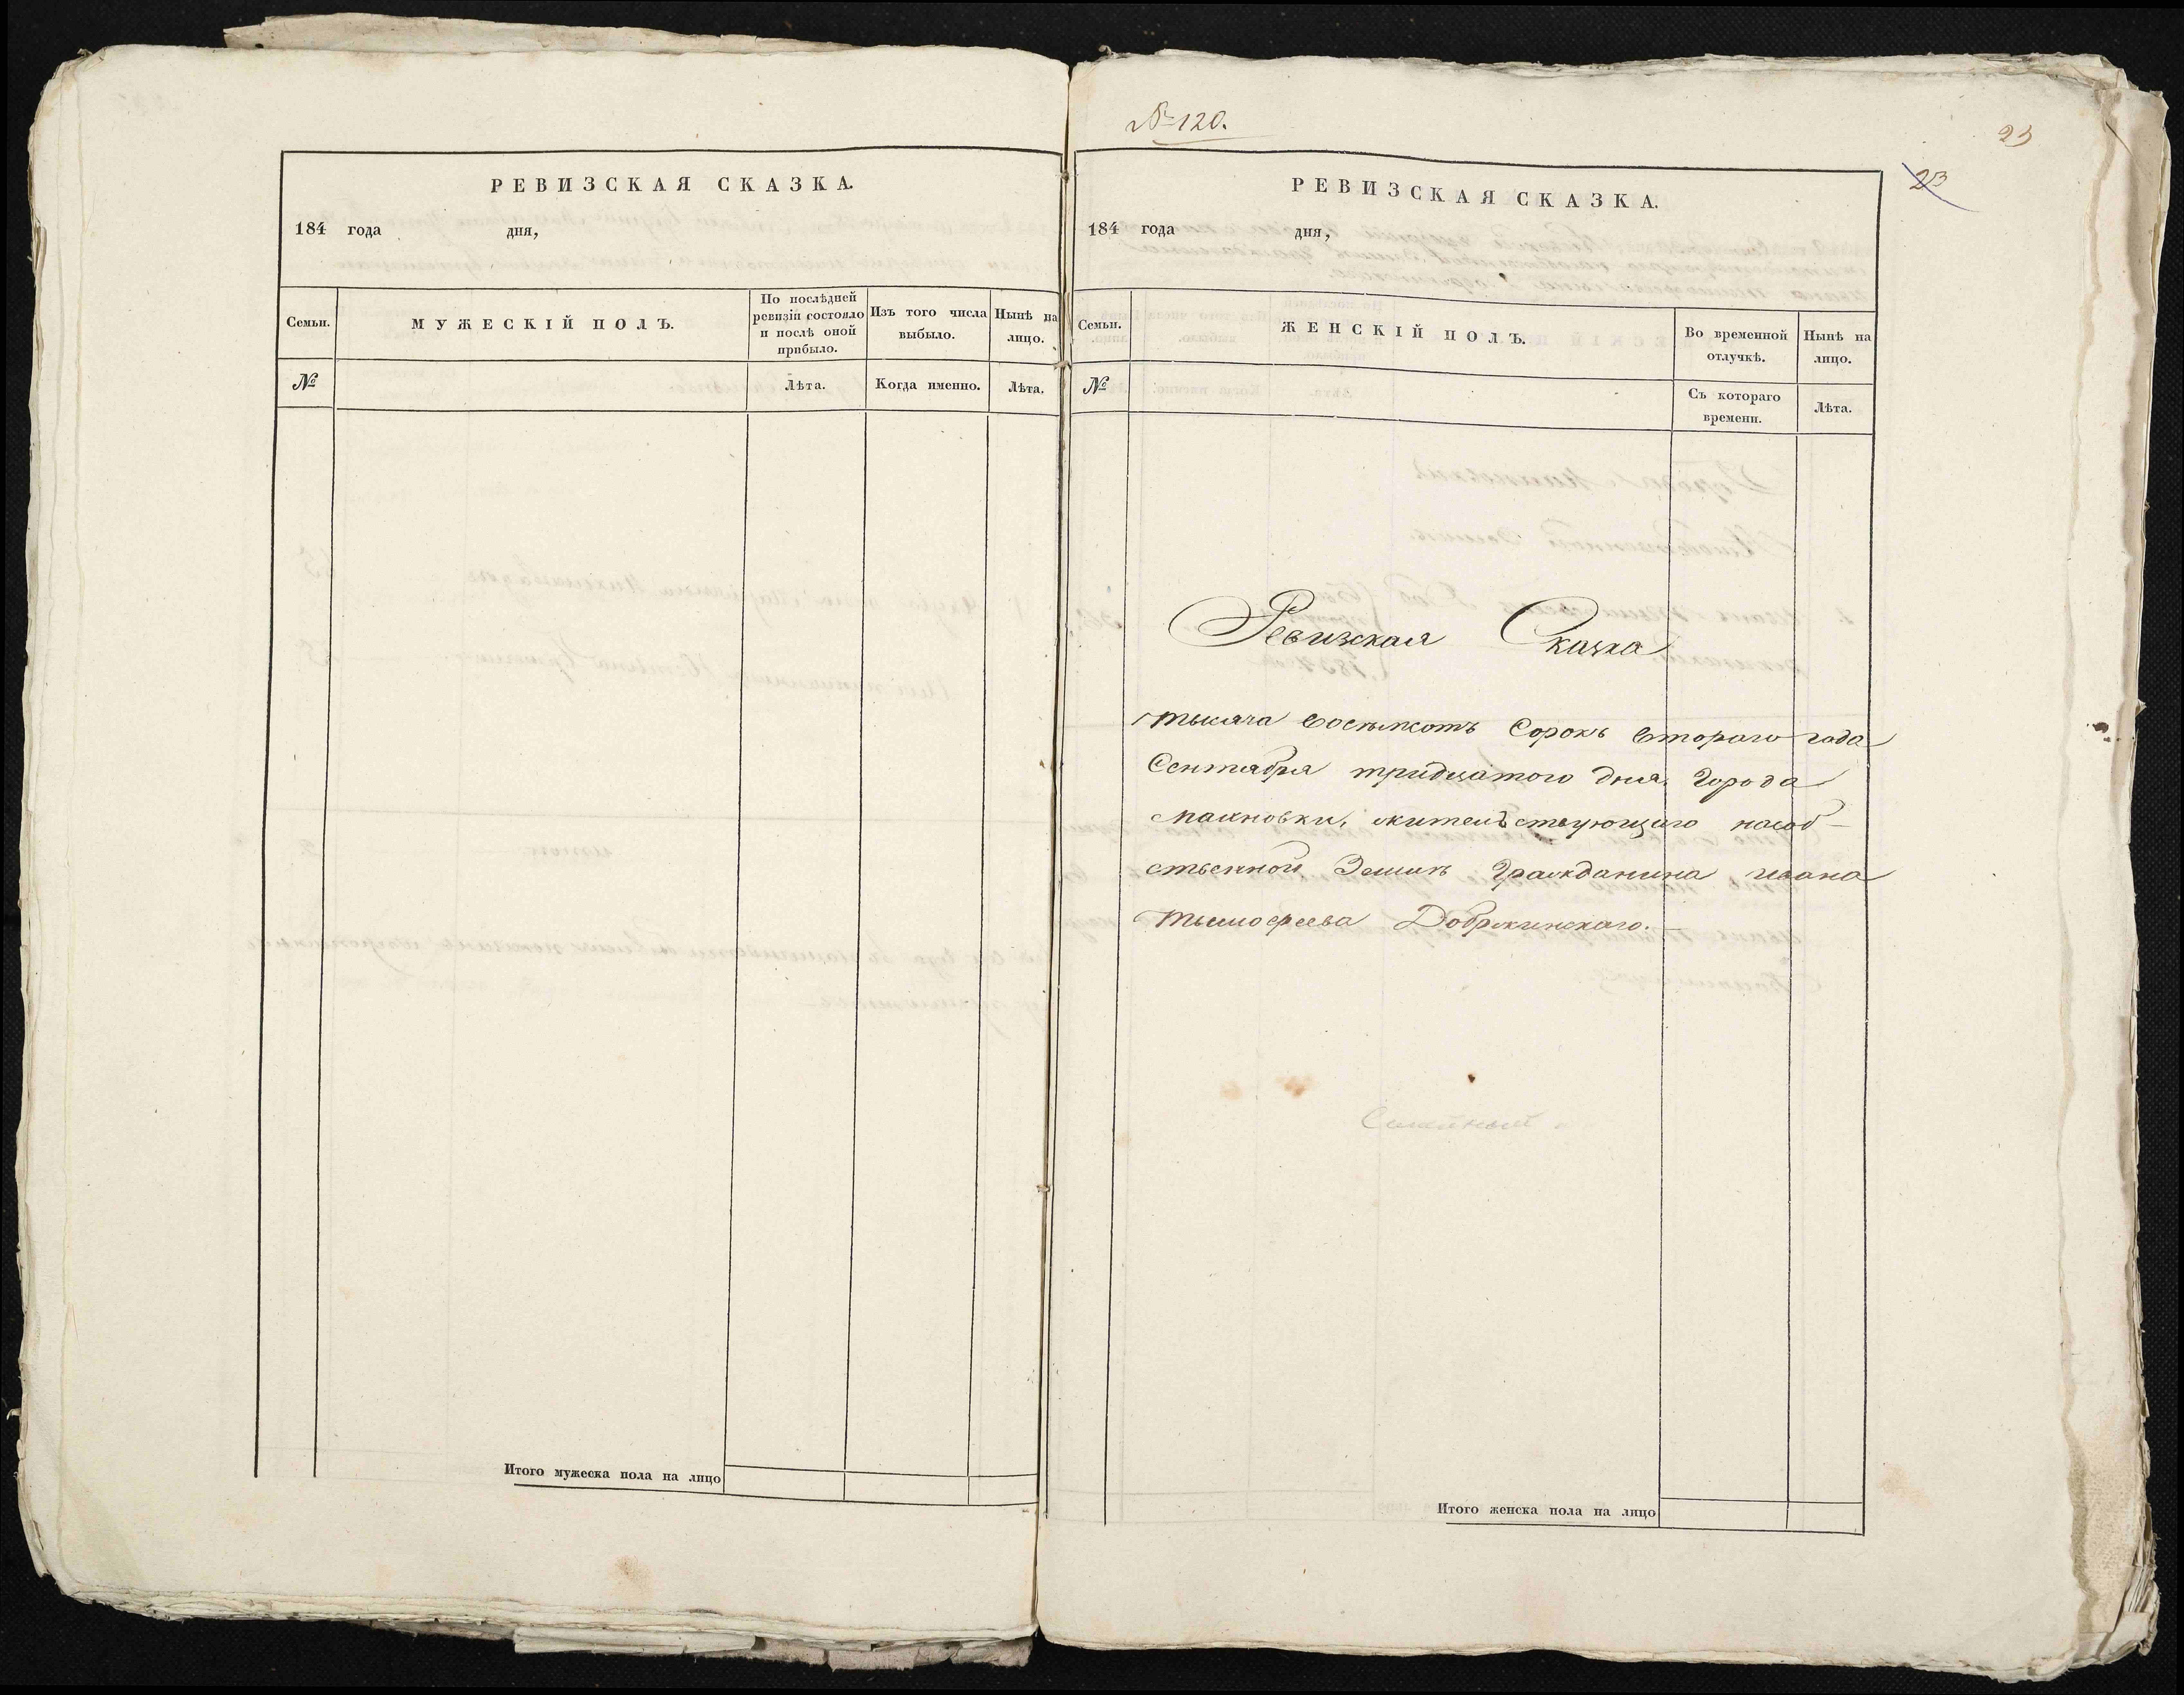 РЕВИЗСКАЯ СКАЗКА.
184 года дня,
Семьи.
МУЖЕСКІЙ ПОЛЪ.
По послѣдней
ревизіи состояло
и послѣ оной
прибыло.
Изъ того числа
выбыло.
Нынѣ на
лицо.
№
Лѣта.
Когда именно.
Лѣта.
Итого мужеска пола на лицо
№ 120.
23
23
РЕВИЗСКАЯ СКАЗКА.
184 года дня,
Семьи.
ЖЕНСКІЙ ПОЛЪ.
Во временной
отлучкѣ.
Нынѣ на
лицо.
№
Съ котораго
времени.
Лѣта.
Ревизская Сказка
тысяча восемсотъ Сорокъ втораго года
Сентября тридцатого дня, Города
Махновки, жительствующего насоб-
ственной Земли Гражданина ивана
тымофеева Добржинскаго.
Итого женска пола на лицо